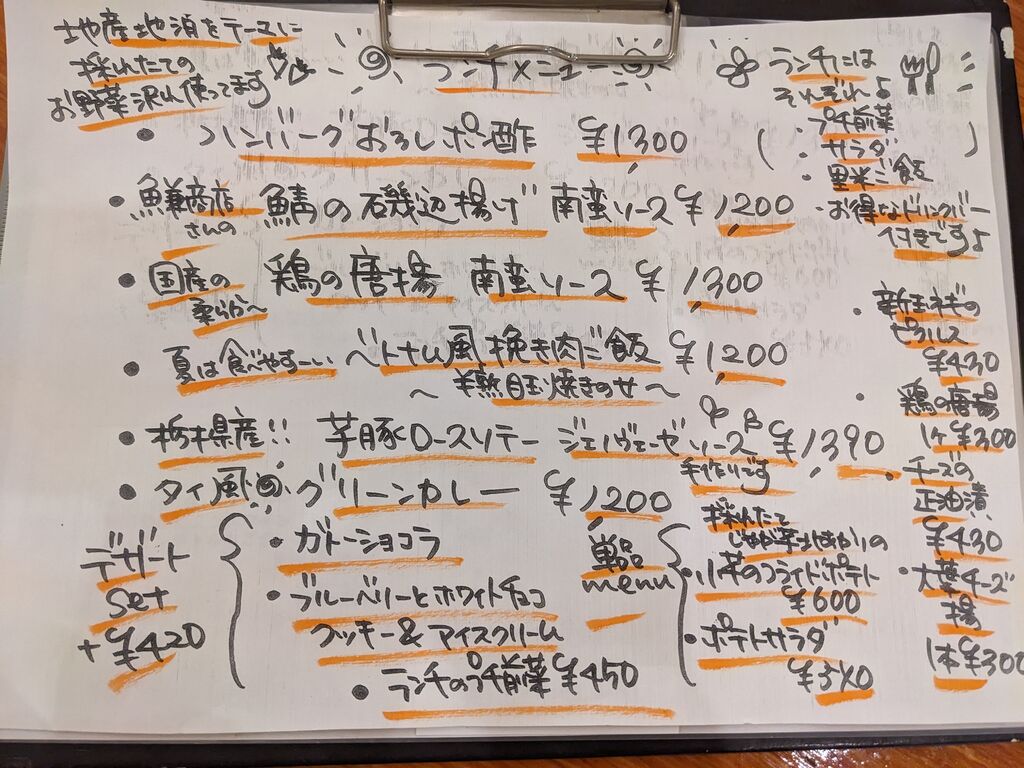 地産地消をテーマに
採れたての
お野菜沢山使ってます
ランチメニュー
ランチには
それぞれ♪
プチ前菜
サラダ
黒米ご飯
・お得なドリンクバー
付きです♪
・ハンバーグおろしポン酢 ¥1300
・魚兼商店さんの 鯖の磯辺揚げ 南蛮ソース ¥1,200
・国産の柔らか〜 鶏の唐揚 南蛮ソース ¥1,300
・夏は食べやすーい ベトナム風挽き肉ご飯 ¥1,200
〜半熟目玉焼きのせ〜
・栃木県産!! 芋豚ロースソテー ジェノヴェーゼソース ¥1,390
手作りです
・タイ風 グリーンカレー ¥1,200
デザート
set
+¥420
・ガトーショコラ
・ブルーベリーとホワイトチョコ
クッキー&アイスクリーム
・ランチのプチ前菜 ¥450
単品
menu
採れたて
じゃが芋北あかりの
・小笠のフライドポテト
¥600
・ポテトサラダ
¥340
・新玉ネギの
ピクルス
¥430
・鶏の唐揚
1ケ ¥300
・チーズの
正油漬
¥430
・大葉チーズ
揚
1本 ¥300